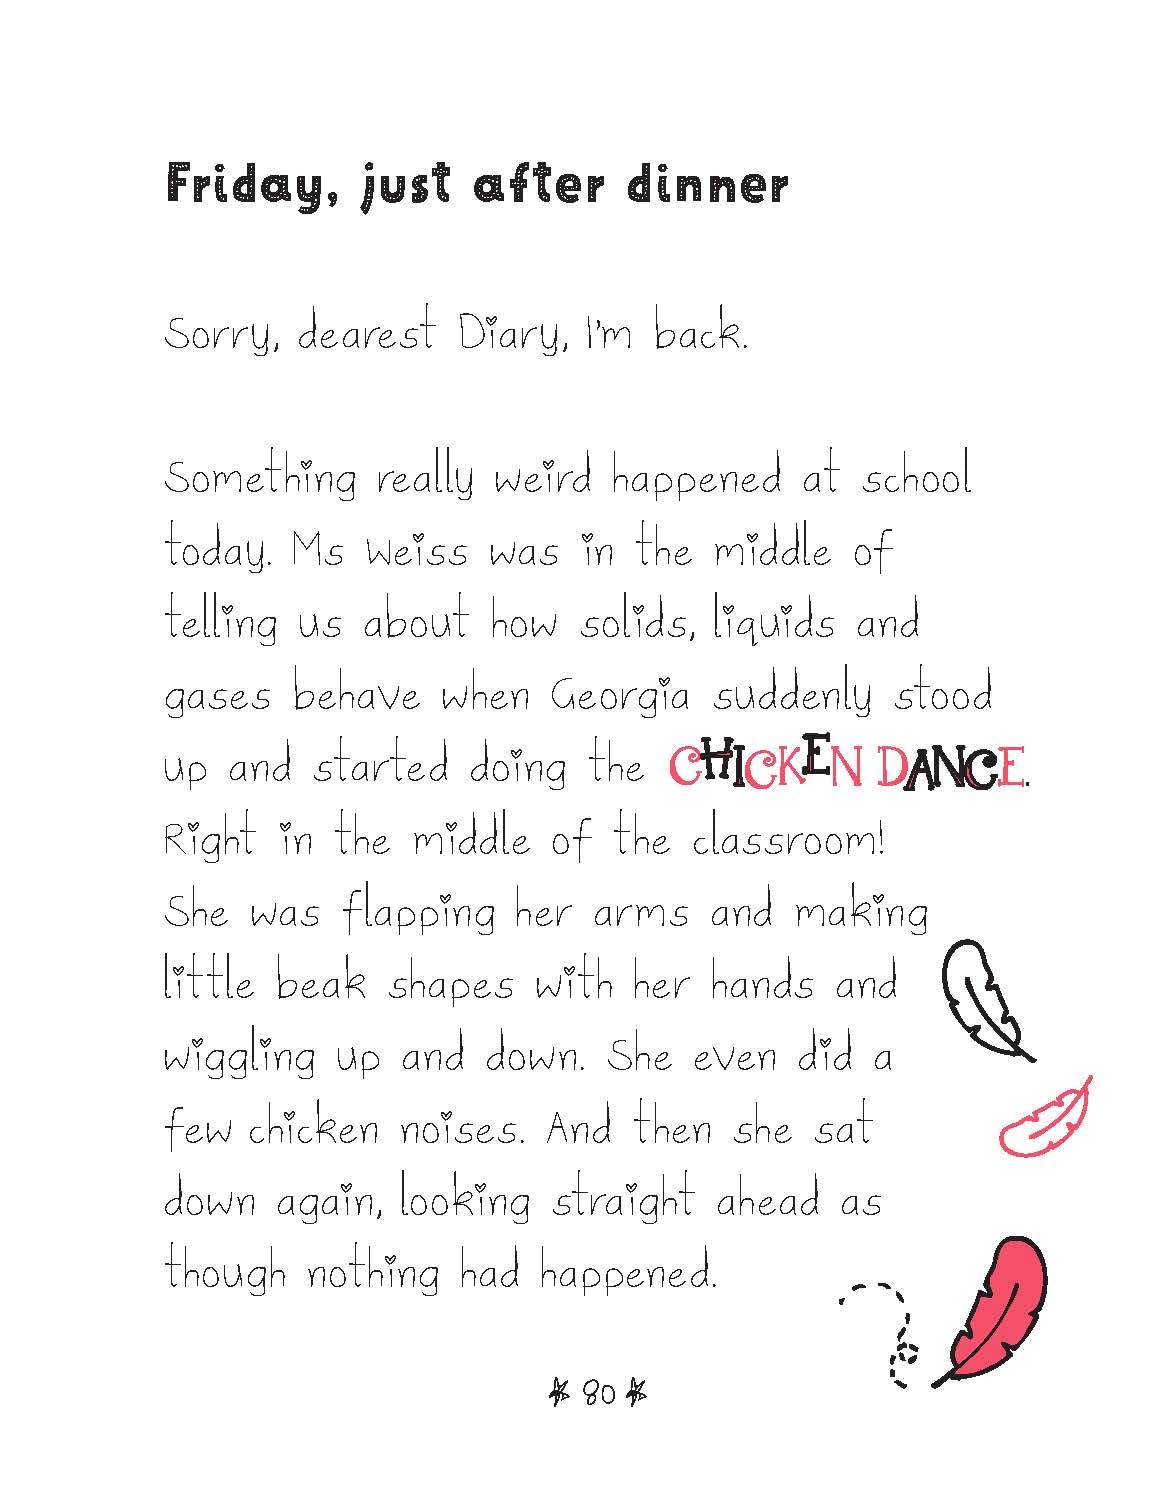 Friday, just after dinner
Sorry, dearest Diary, I'm back.
Something really weird happened at school
today. Ms Weiss was in the middle of
telling us about how solids, liquids and
gases behave when Georgia suddenly stood
up and started doing the CHICKEN DANCE.
Right in the middle of the classroom!
She was flapping her arms and making
little beak shapes with her hands and
wiggling up and down. She even did a
few chicken noises. And then she sat
down again, looking straight ahead as
though nothing had happened.
80